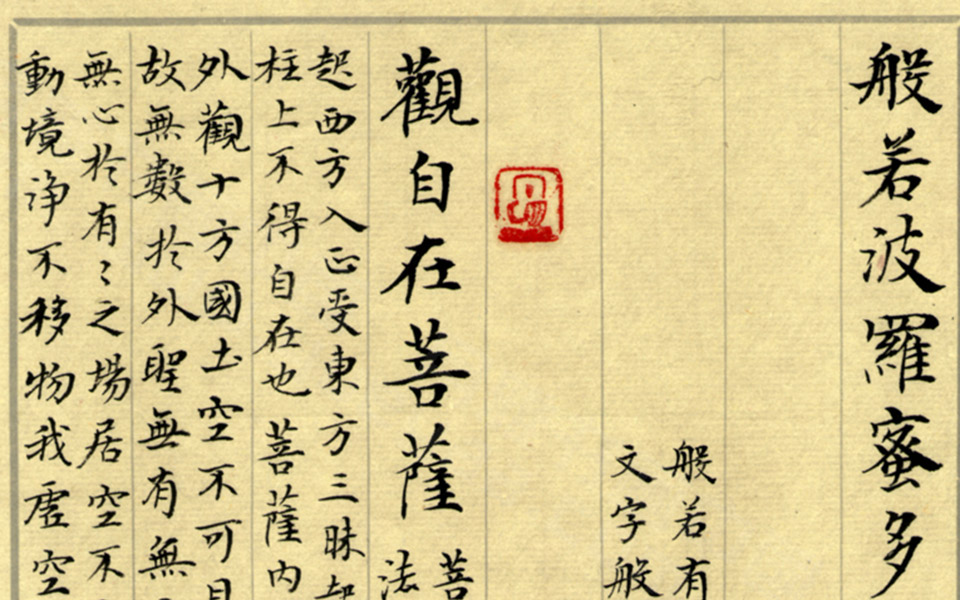 般若波羅蜜多
般若有
文字般
觀自在菩薩
菩
法
起西方入正受東方三昧起
柱上不得自在也菩薩内
外觀十方國土空不可見
故無數於外聖無有無
無心於有〻之場居空不
動境淨不移物我虛空